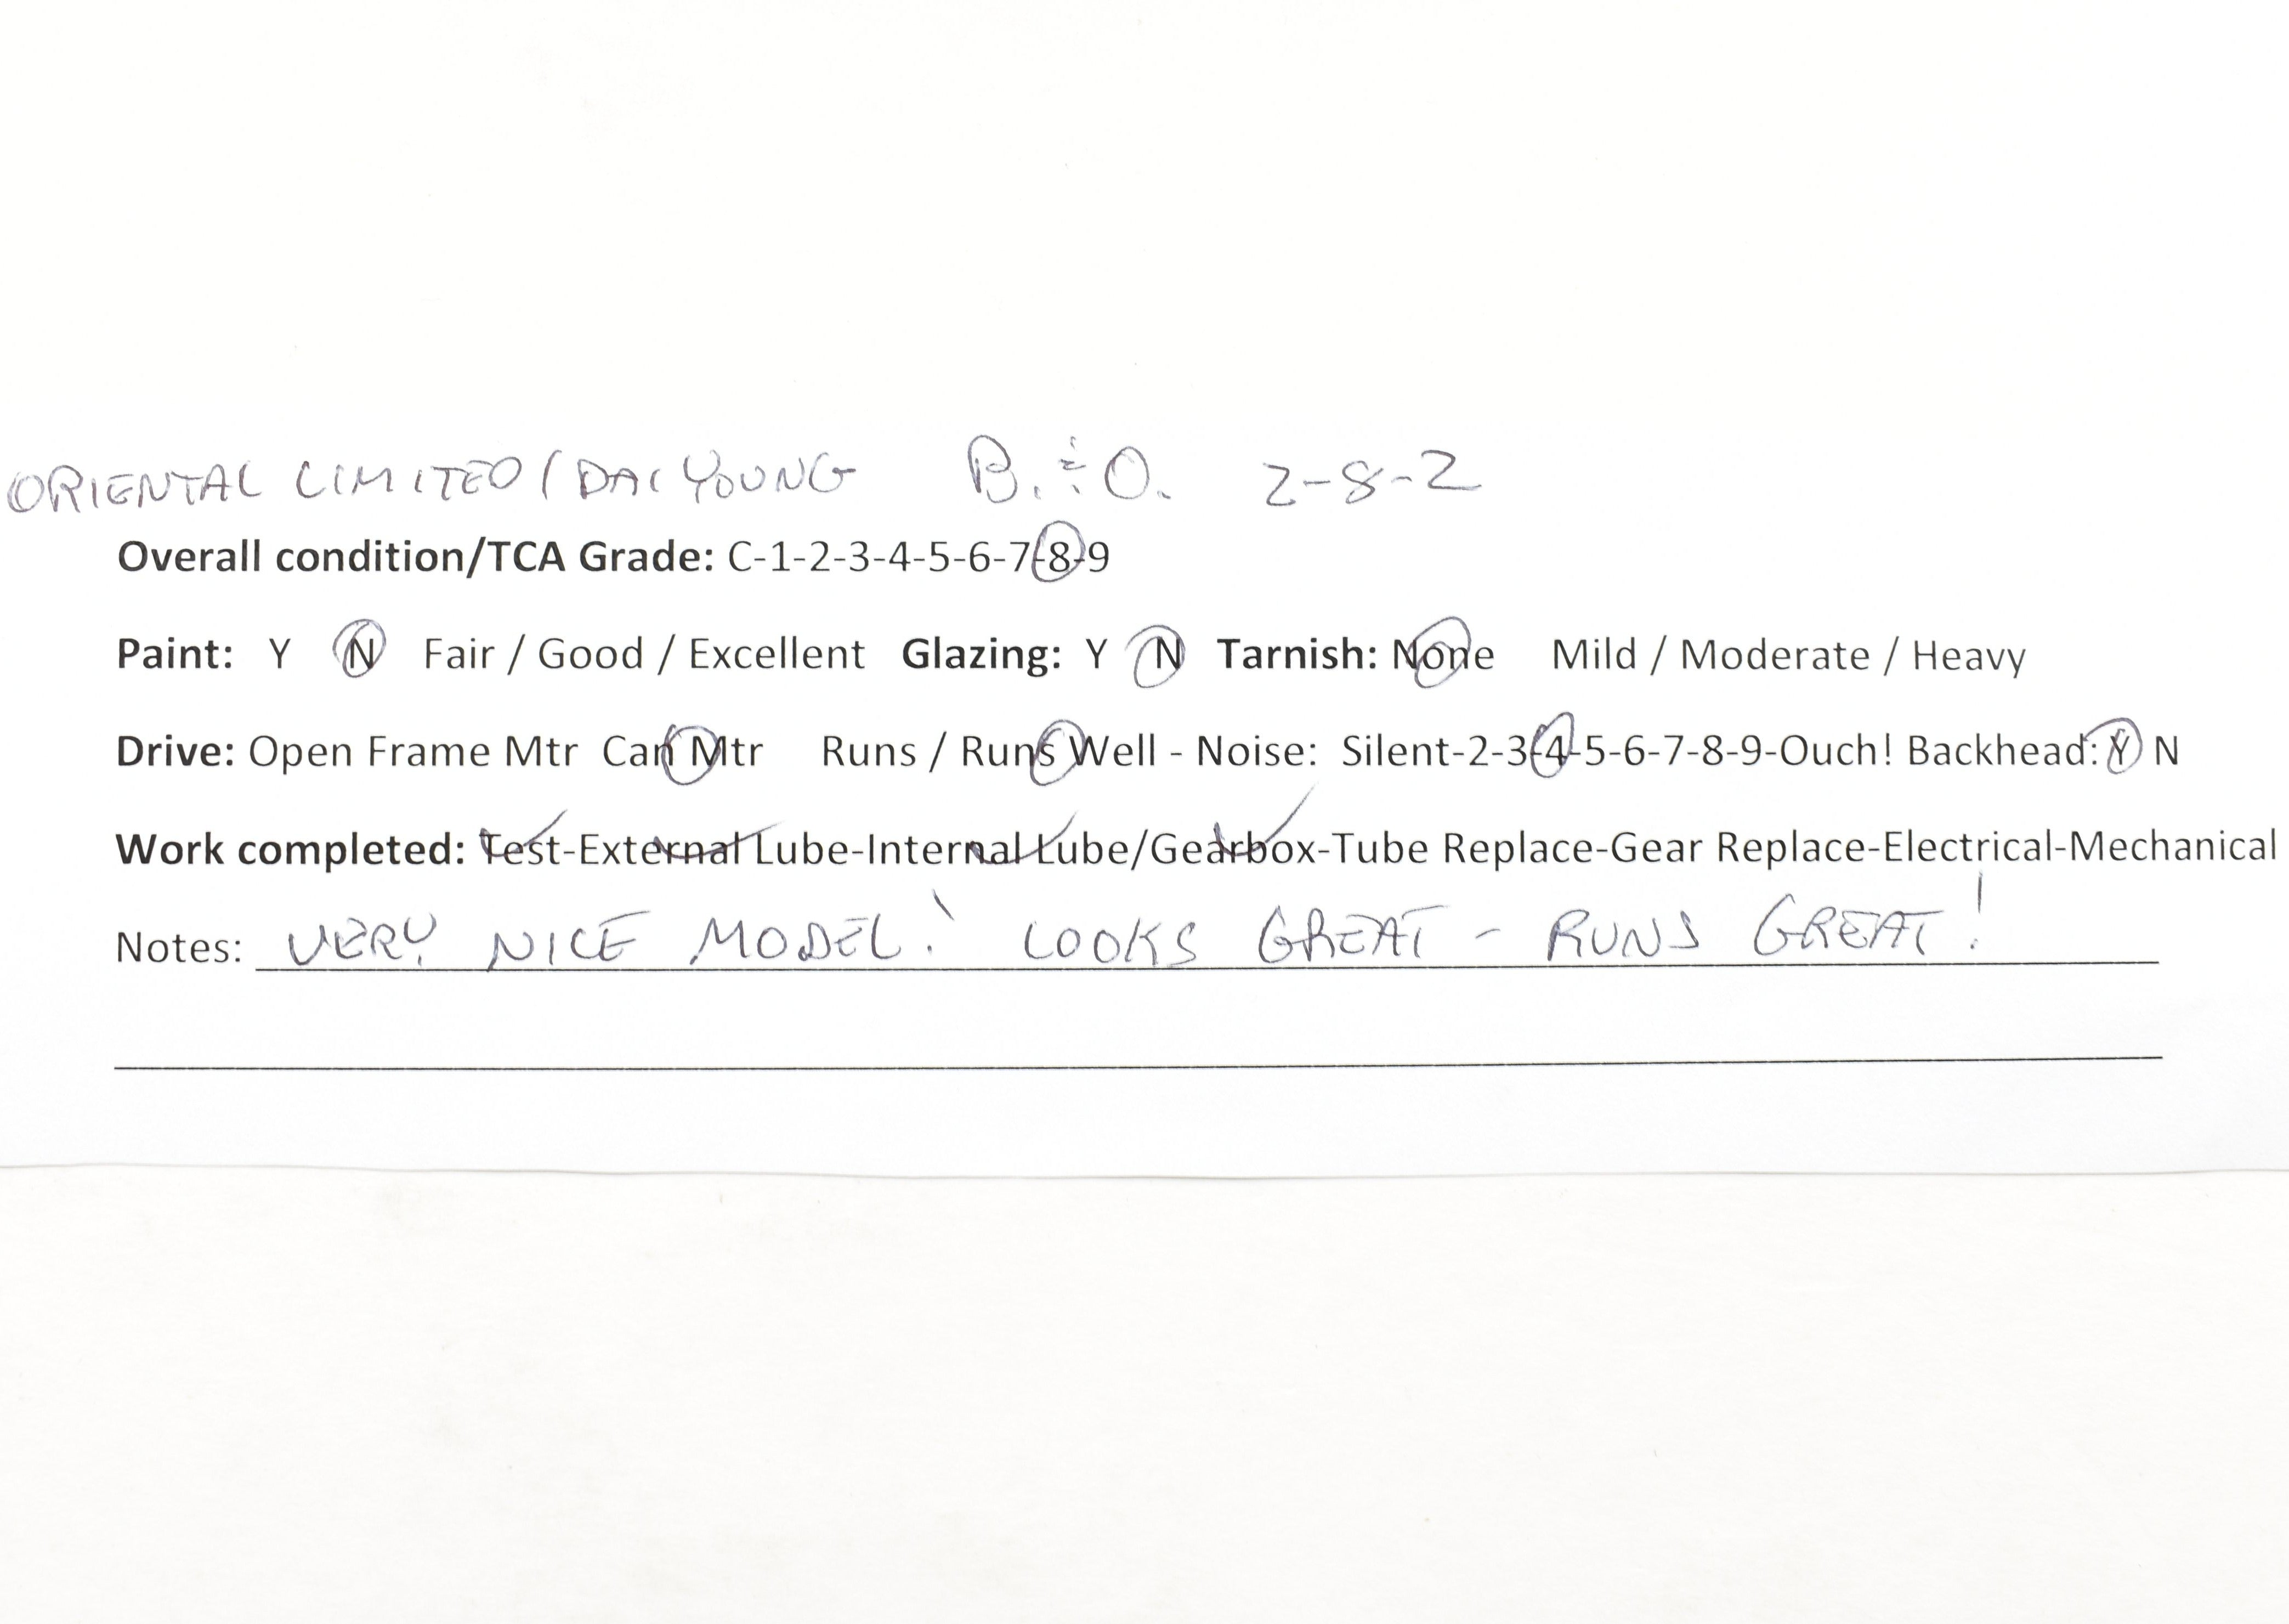 ORIENTAL LIMITED/DAI YOUNG B.&O. 2-8-2
Overall condition/TCA Grade: C-1-2-3-4-5-6-7-8-9
Paint: Y N Fair / Good / Excellent Glazing: Y N Tarnish: None Mild / Moderate / Heavy
Drive: Open Frame Mtr Can Mtr Runs / Runs Well - Noise: Silent-2-3-4-5-6-7-8-9-Ouch! Backhead: Y N
Work completed: Test-External Lube-Internal Lube/Gearbox-Tube Replace-Gear Replace-Electrical-Mechanical
Notes: VERY NICE MODEL! LOOKS GREAT - RUNS GREAT!